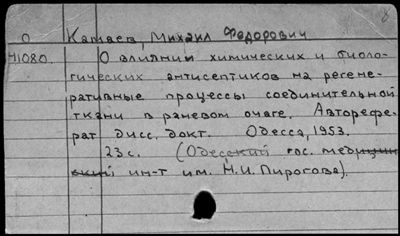 8
О Катаев, Михаил Федорович
41080. О влиянии химических и биоло-
гических антисептиков на регене-
ративные процессы соединительной
ткани в раневом очаге. Авторефе-
рат дисс. докт. Одесса, 1953.
23 с. (Одесский гос. медицин-
ский ин-т им. Н.И. Пирогова).